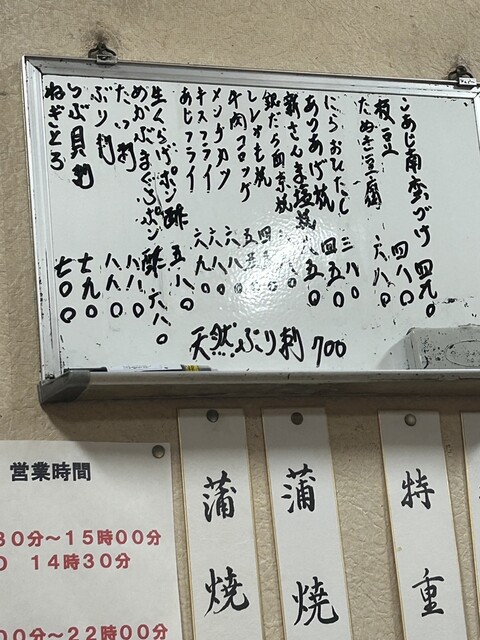 小あじ南蛮づけ 四九〇
枝豆 四八〇
たぬき豆腐 六八〇
にらおひたし 三八〇
あつあげ焼 四五〇
新さんま塩焼 八五〇
銀だら西京焼 八八〇
ししゃも焼 四五〇
牛肉コロッケ 五五〇
メンチカツ 六八〇
キスフライ 八八〇
あじフライ 六九〇
生くらげポン酢 五八〇
めかぶまぐろポン酢 六八〇
たこ刺 八八〇
ぶり刺 八八〇
つぶ貝刺 七九〇
ねぎとろ 七〇〇
天然ぶり刺 700
営業時間
30分～15時00分
14時30分
00分～22時00分
蒲焼
蒲焼
特重